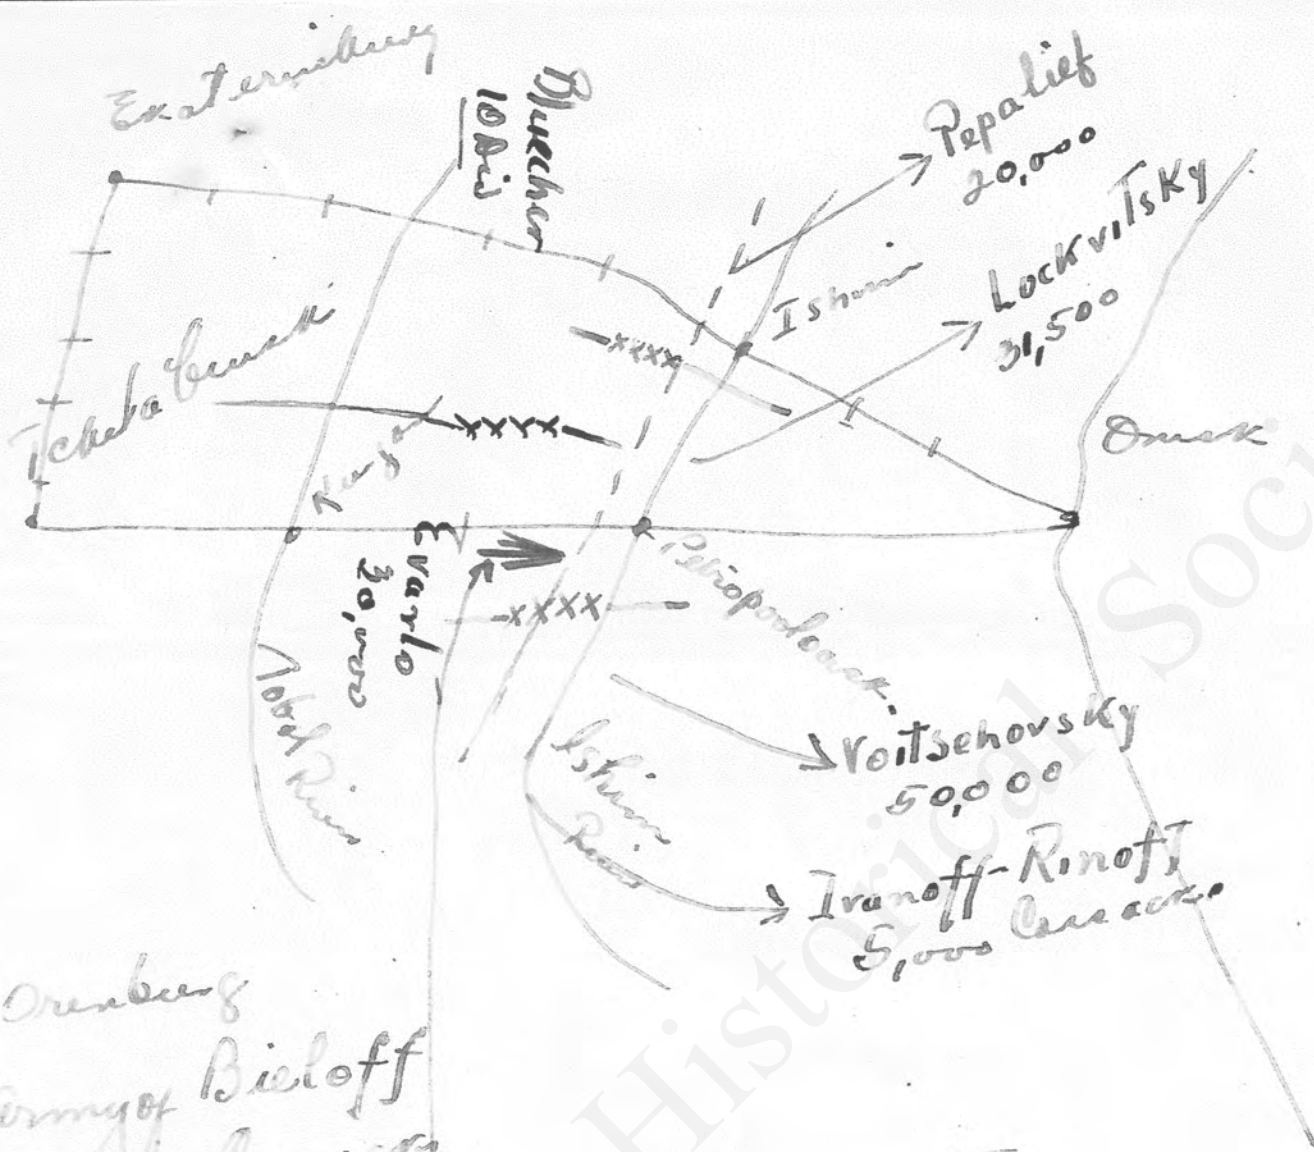 Ekaterinburg
Bluecher
10 Div
Pepalief
20,000
Lockvitsky
31,500
Ishim
Omsk
Tcheliabinsk
Kurgan
Evarlo
30,000
Petropavlovsk
Tobol River
Ishim
River
Voitsehovsky
50,000
Ivanoff-Rinoff
5,000 Cossacks
Orenburg
Army of Bieloff
Historical Soci